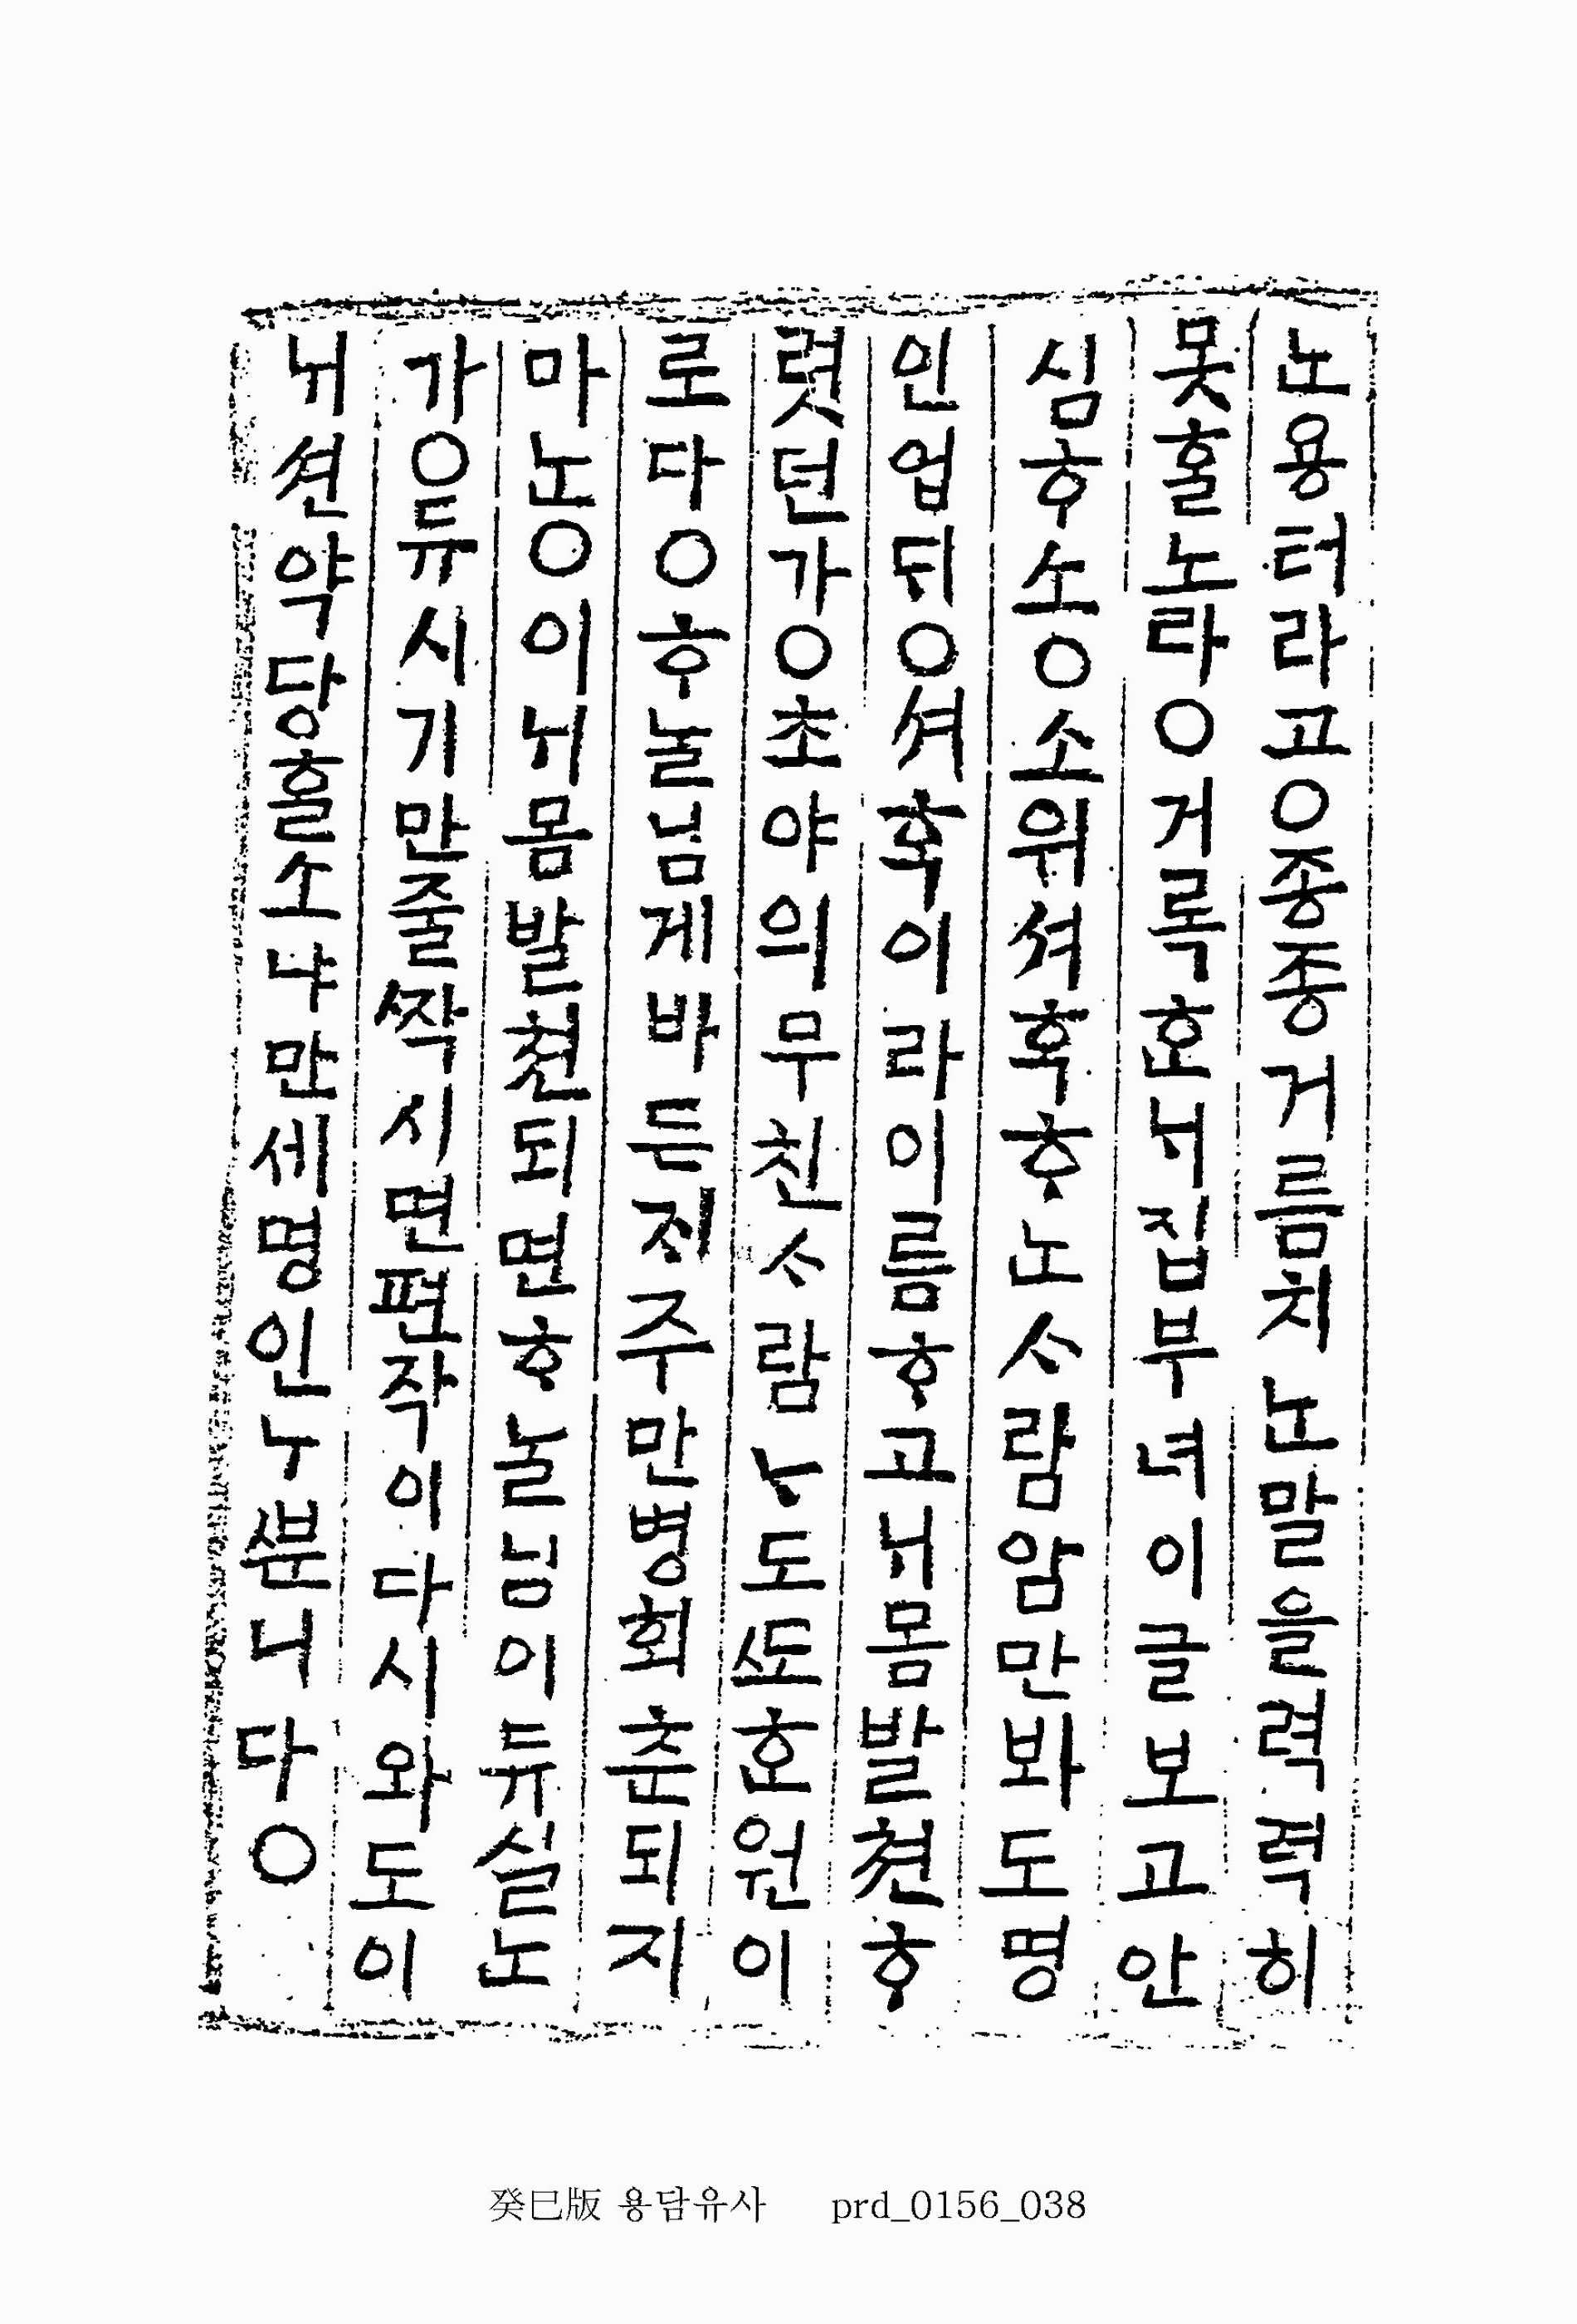 노용터라고○종종거름치노말을력력히
못ᄒᆞᆯ노라○거록ᄒᆞᆫᄂᆡ집부녀이글보고안
심ᄒᆞ소○소위셔ᄒᆞᆨᄒᆞ노ᄉᆞ람암만봐도명
인업ᄃᆡ○셔ᄒᆞᆨ이라이름ᄒᆞ고ᄂᆡ몸발쳔ᄒᆞ
렷던가○초야의무친ᄉᆞ람ᄂᆞ도ᄯᅩᄒᆞᆫ원이
로다○ᄒᆞᄂᆞᆯ님게바든ᄌᆡ주만병회춘되지
마ᄂᆞᆫ○이ᄂᆡ몸발쳔되면ᄒᆞᄂᆞᆯ님이듀실노
가○듀시기만줄ᄶᅡᆨ시면편작이다시와도이
ᄂᆡ션약당ᄒᆞᆯ소냐만세명인ᄂᆞᄲᅮᆫ니다○
癸巳版 용담유사 prd_0156_038